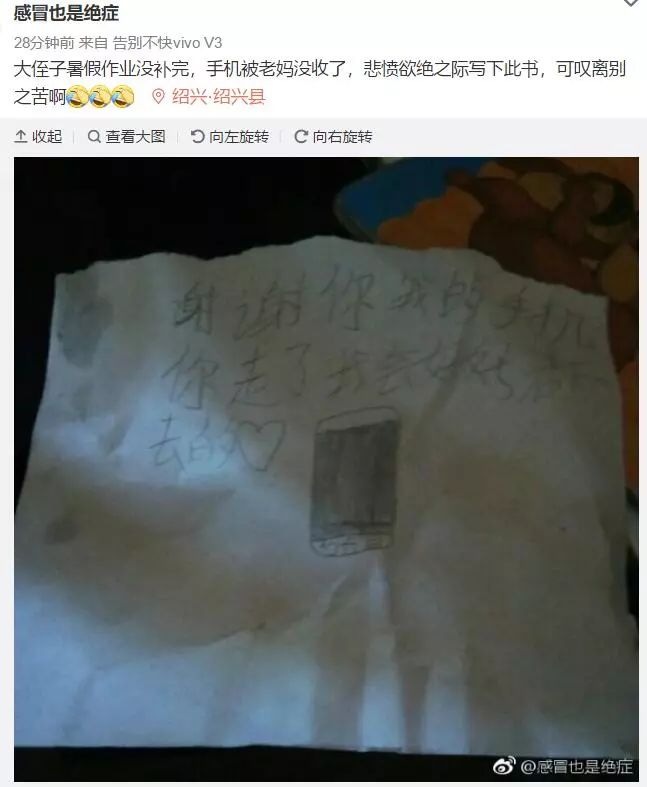 感冒也是绝症
28分钟前 来自 告别不快vivo V3
大侄子暑假作业没补完，手机被老妈没收了，悲愤欲绝之际写下此书，可叹离别
之苦啊 绍兴·绍兴县
收起 查看大图 向左旋转 向右旋转
谢谢你我的手机
你走了我会好好活下
去的
@感冒也是绝症